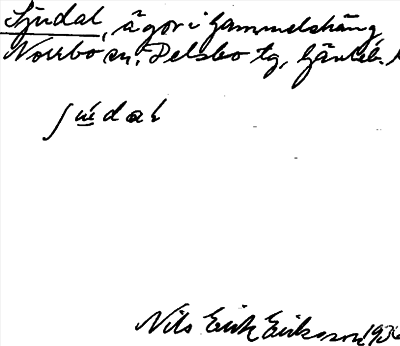 Sjudal, ägor i Gammelsträng
Norrbo sn, Delsbo tg, Gävleb. l
ʃuèdaɫ
Nils Erik Eriksson 1936